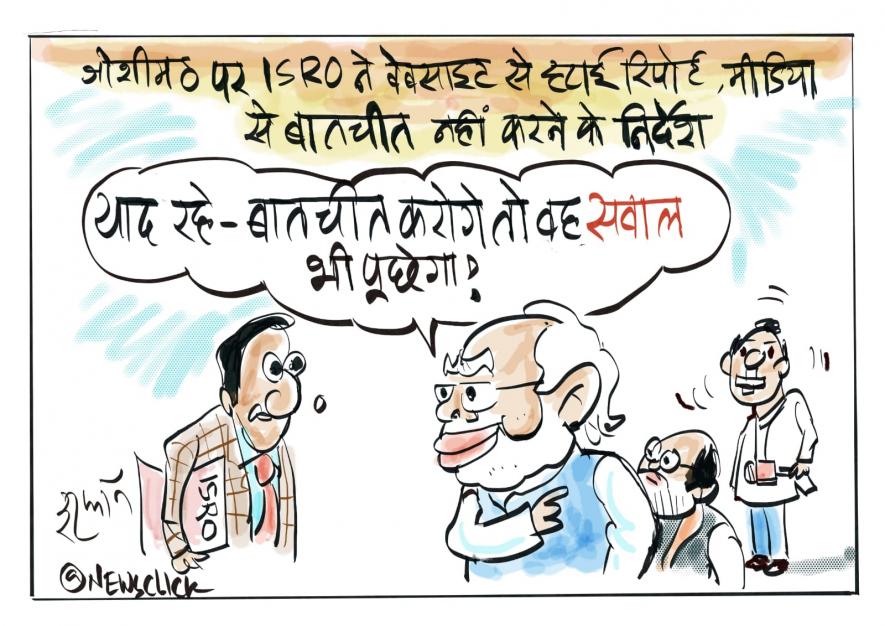 जोशीमठ पर ISRO ने वेबसाइट से हटाई रिपोर्ट, मीडिया
से बातचीत नहीं करने के निर्देश
याद रहे - बातचीत करोगे तो वह सवाल
भी पूछेगा!
ISRO
इरफान
©NEWSCLICK